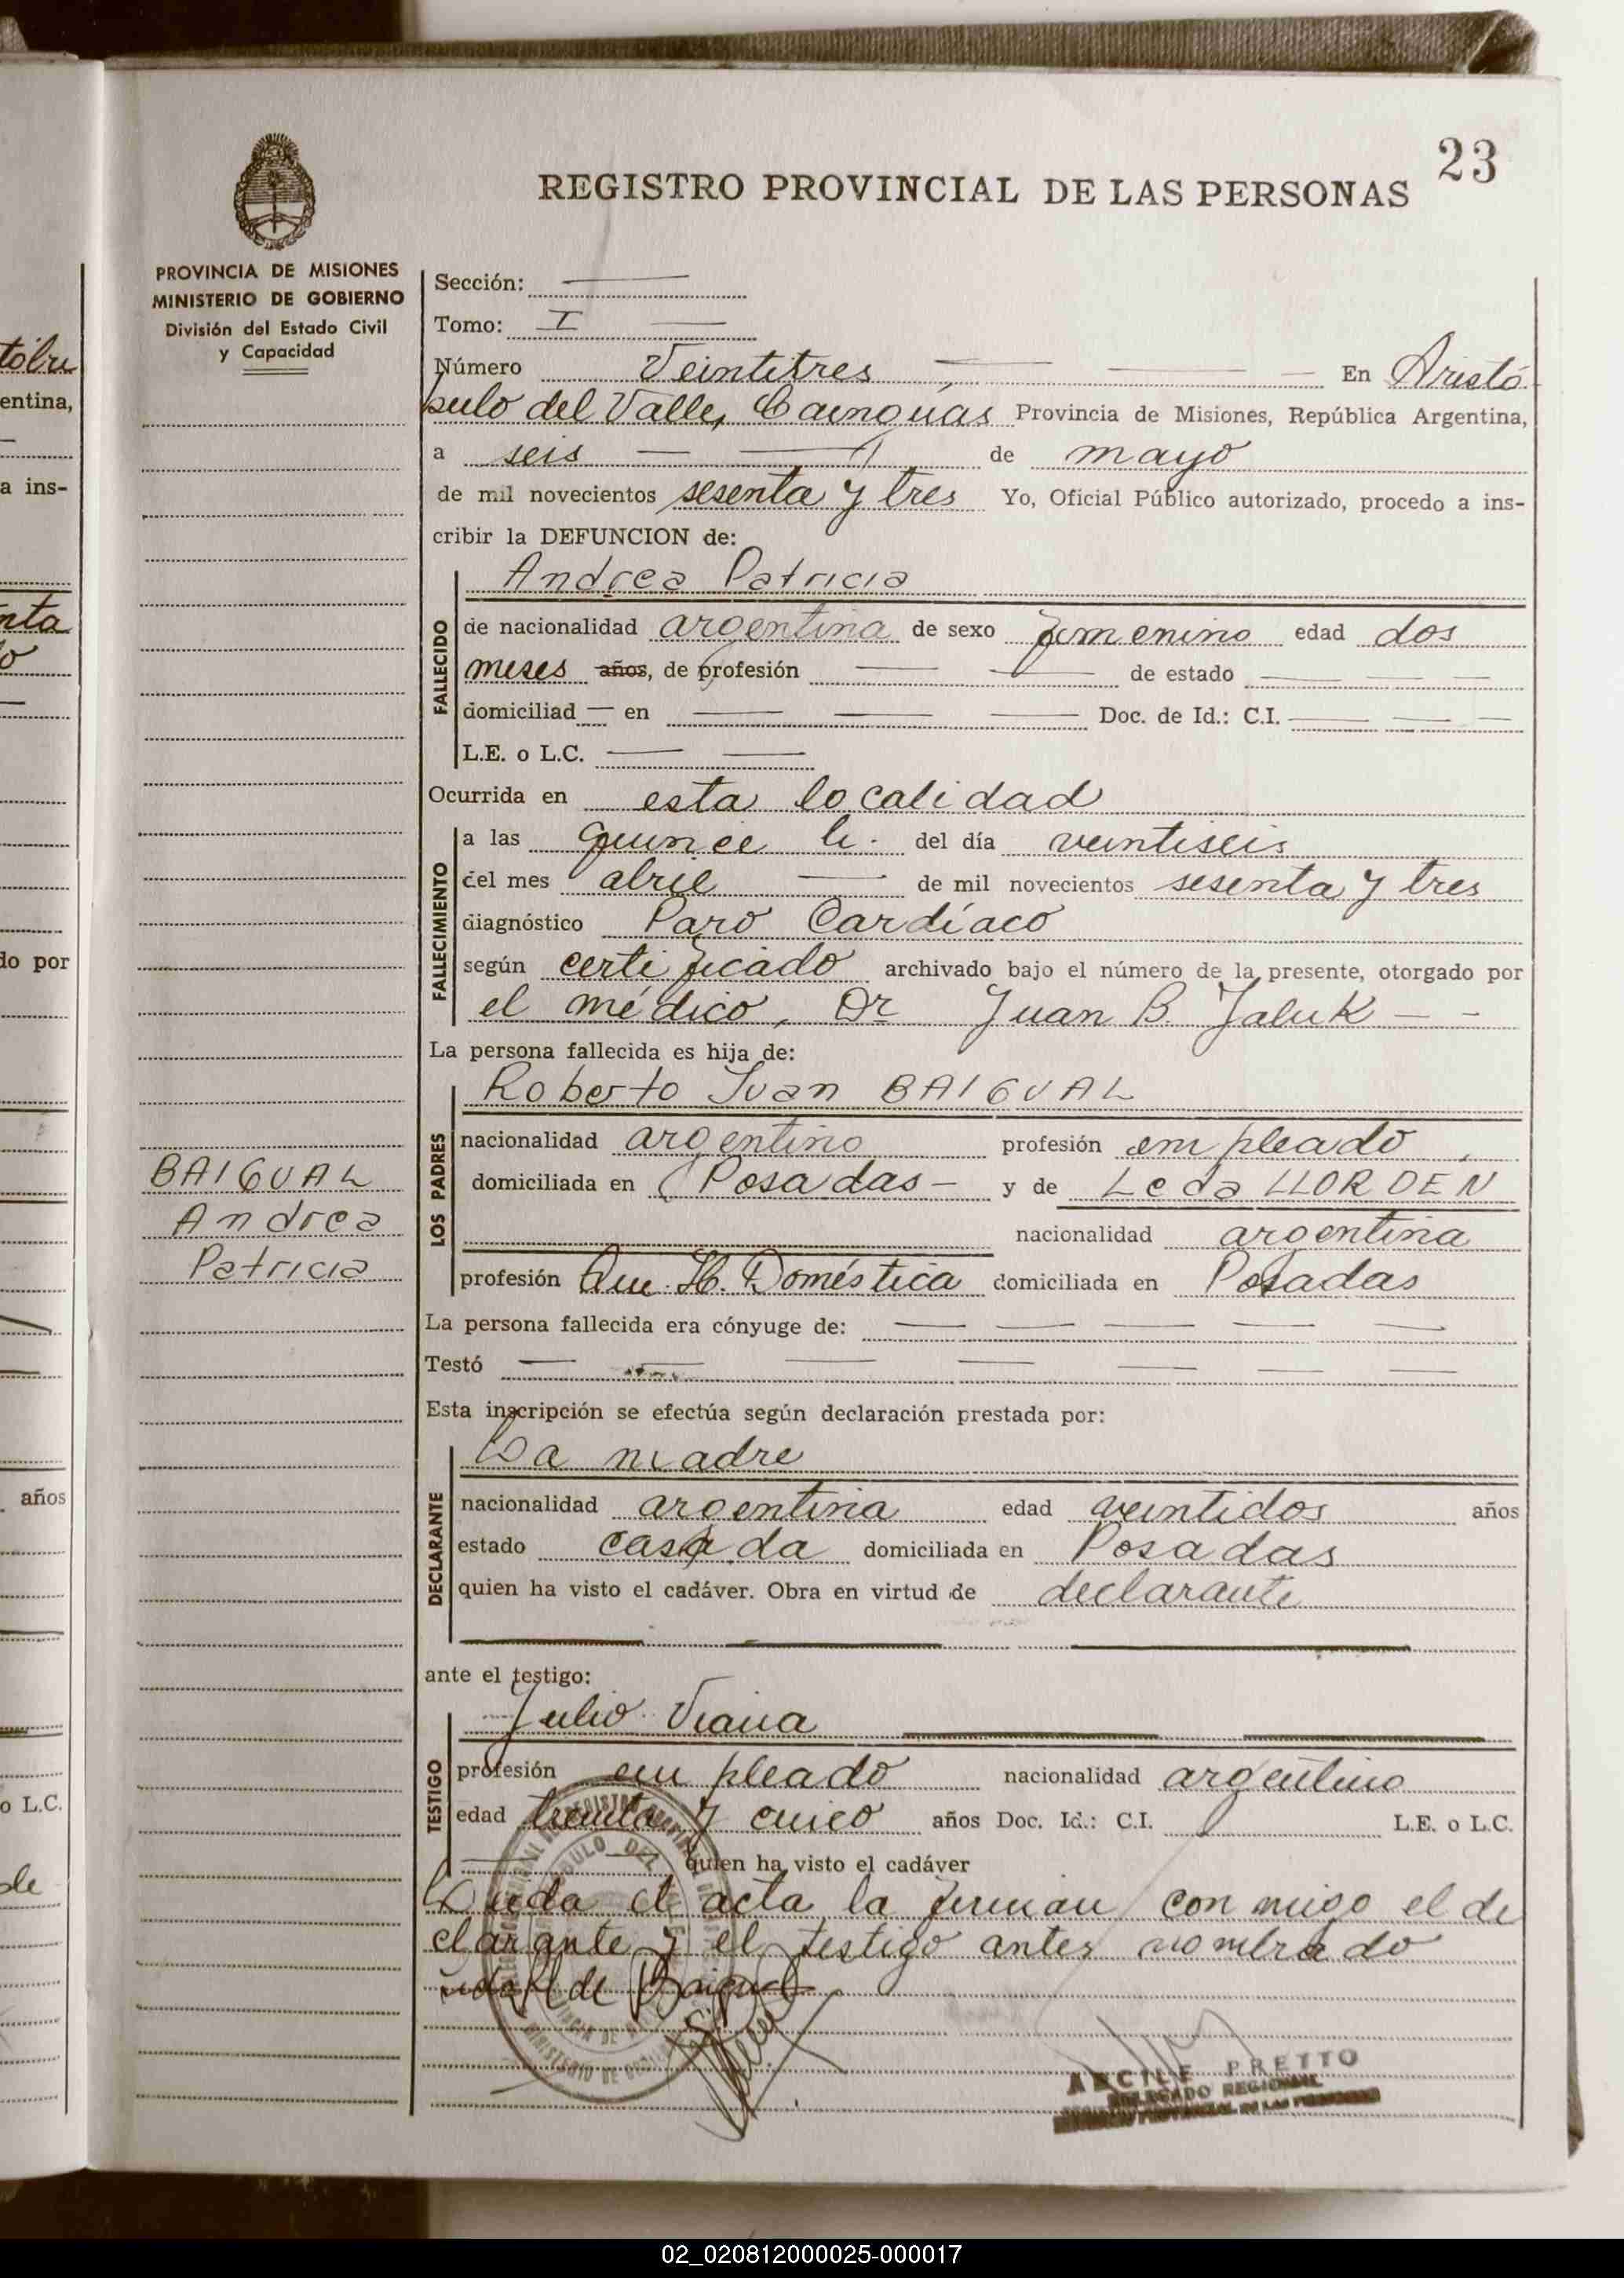 23
REGISTRO PROVINCIAL DE LAS PERSONAS
PROVINCIA DE MISIONES
MINISTERIO DE GOBIERNO
División del Estado Civil
y Capacidad
Sección:
Tomo: I
Número Veintitres En Aristó
bulo del Valle, Cainguas Provincia de Misiones, República Argentina,
a seis de mayo
de mil novecientos sesenta y tres Yo, Oficial Público autorizado, procedo a ins-
cribir la DEFUNCION de:
FALLECIDO
Andrea Patricia
de nacionalidad argentina de sexo femenino edad dos
meses años, de profesión de estado
domiciliad — en Doc. de Id.: C.I.
L.E. o L.C.
Ocurrida en esta localidad
FALLECIMIENTO
a las quince h. del día veintiseis
del mes abril de mil novecientos sesenta y tres
diagnóstico Paro Cardíaco
según certificado archivado bajo el número de la presente, otorgado por
el médico, Dr Juan B. Jaluk
La persona fallecida es hija de:
LOS PADRES
Roberto Juan BAIGUAL
nacionalidad argentino profesión empleado
domiciliada en Posadas - y de Leda LLORDEN
nacionalidad argentina
profesión Que. H. Doméstica domiciliada en Posadas
BAIGUAL
Andrea
Patricia
La persona fallecida era cónyuge de:
Testó
Esta inscripción se efectúa según declaración prestada por:
DECLARANTE
La madre
nacionalidad argentina edad veintidos años
estado casada domiciliada en Posadas
quien ha visto el cadáver. Obra en virtud de declarante
ante el testigo:
TESTIGO
Julio Viana
profesión empleado nacionalidad argentino
edad treinta y cinco años Doc. Id.: C.I. L.E. o L.C.
quien ha visto el cadáver
Leida el acta la firman con migo el de
clarante y el testigo antes nombrado
de Baigual
PRETTO
DELEGADO REGIONAL
REGISTRO PROVINCIAL DE LAS PERSONAS
tólu
entina,
a ins-
nta
o
do por
años
o L.C.
de
02_020812000025-000017